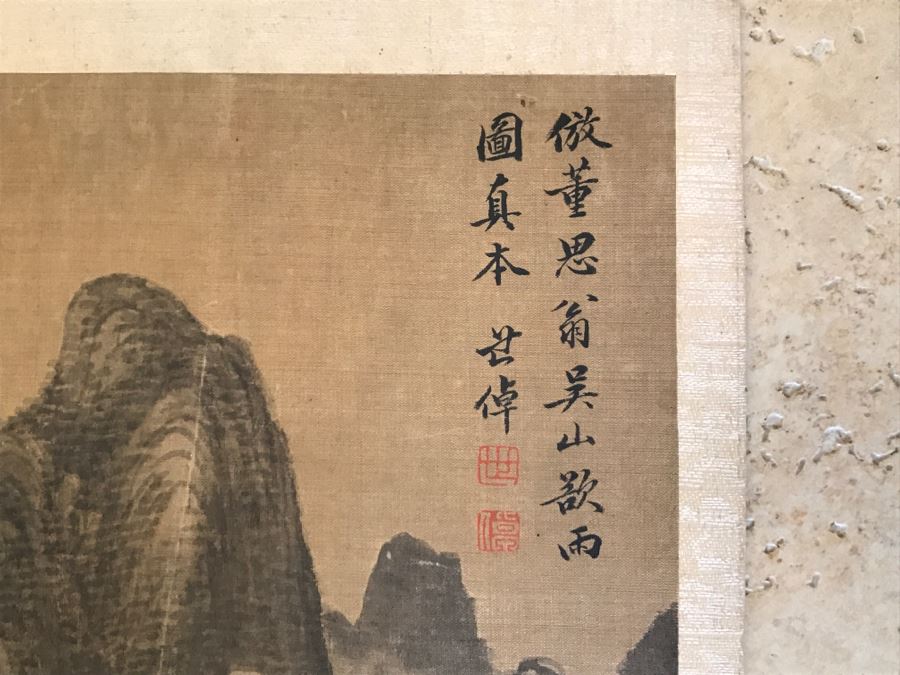 倣董思翁吳山欲雨
圖真本 世倬
世
倬